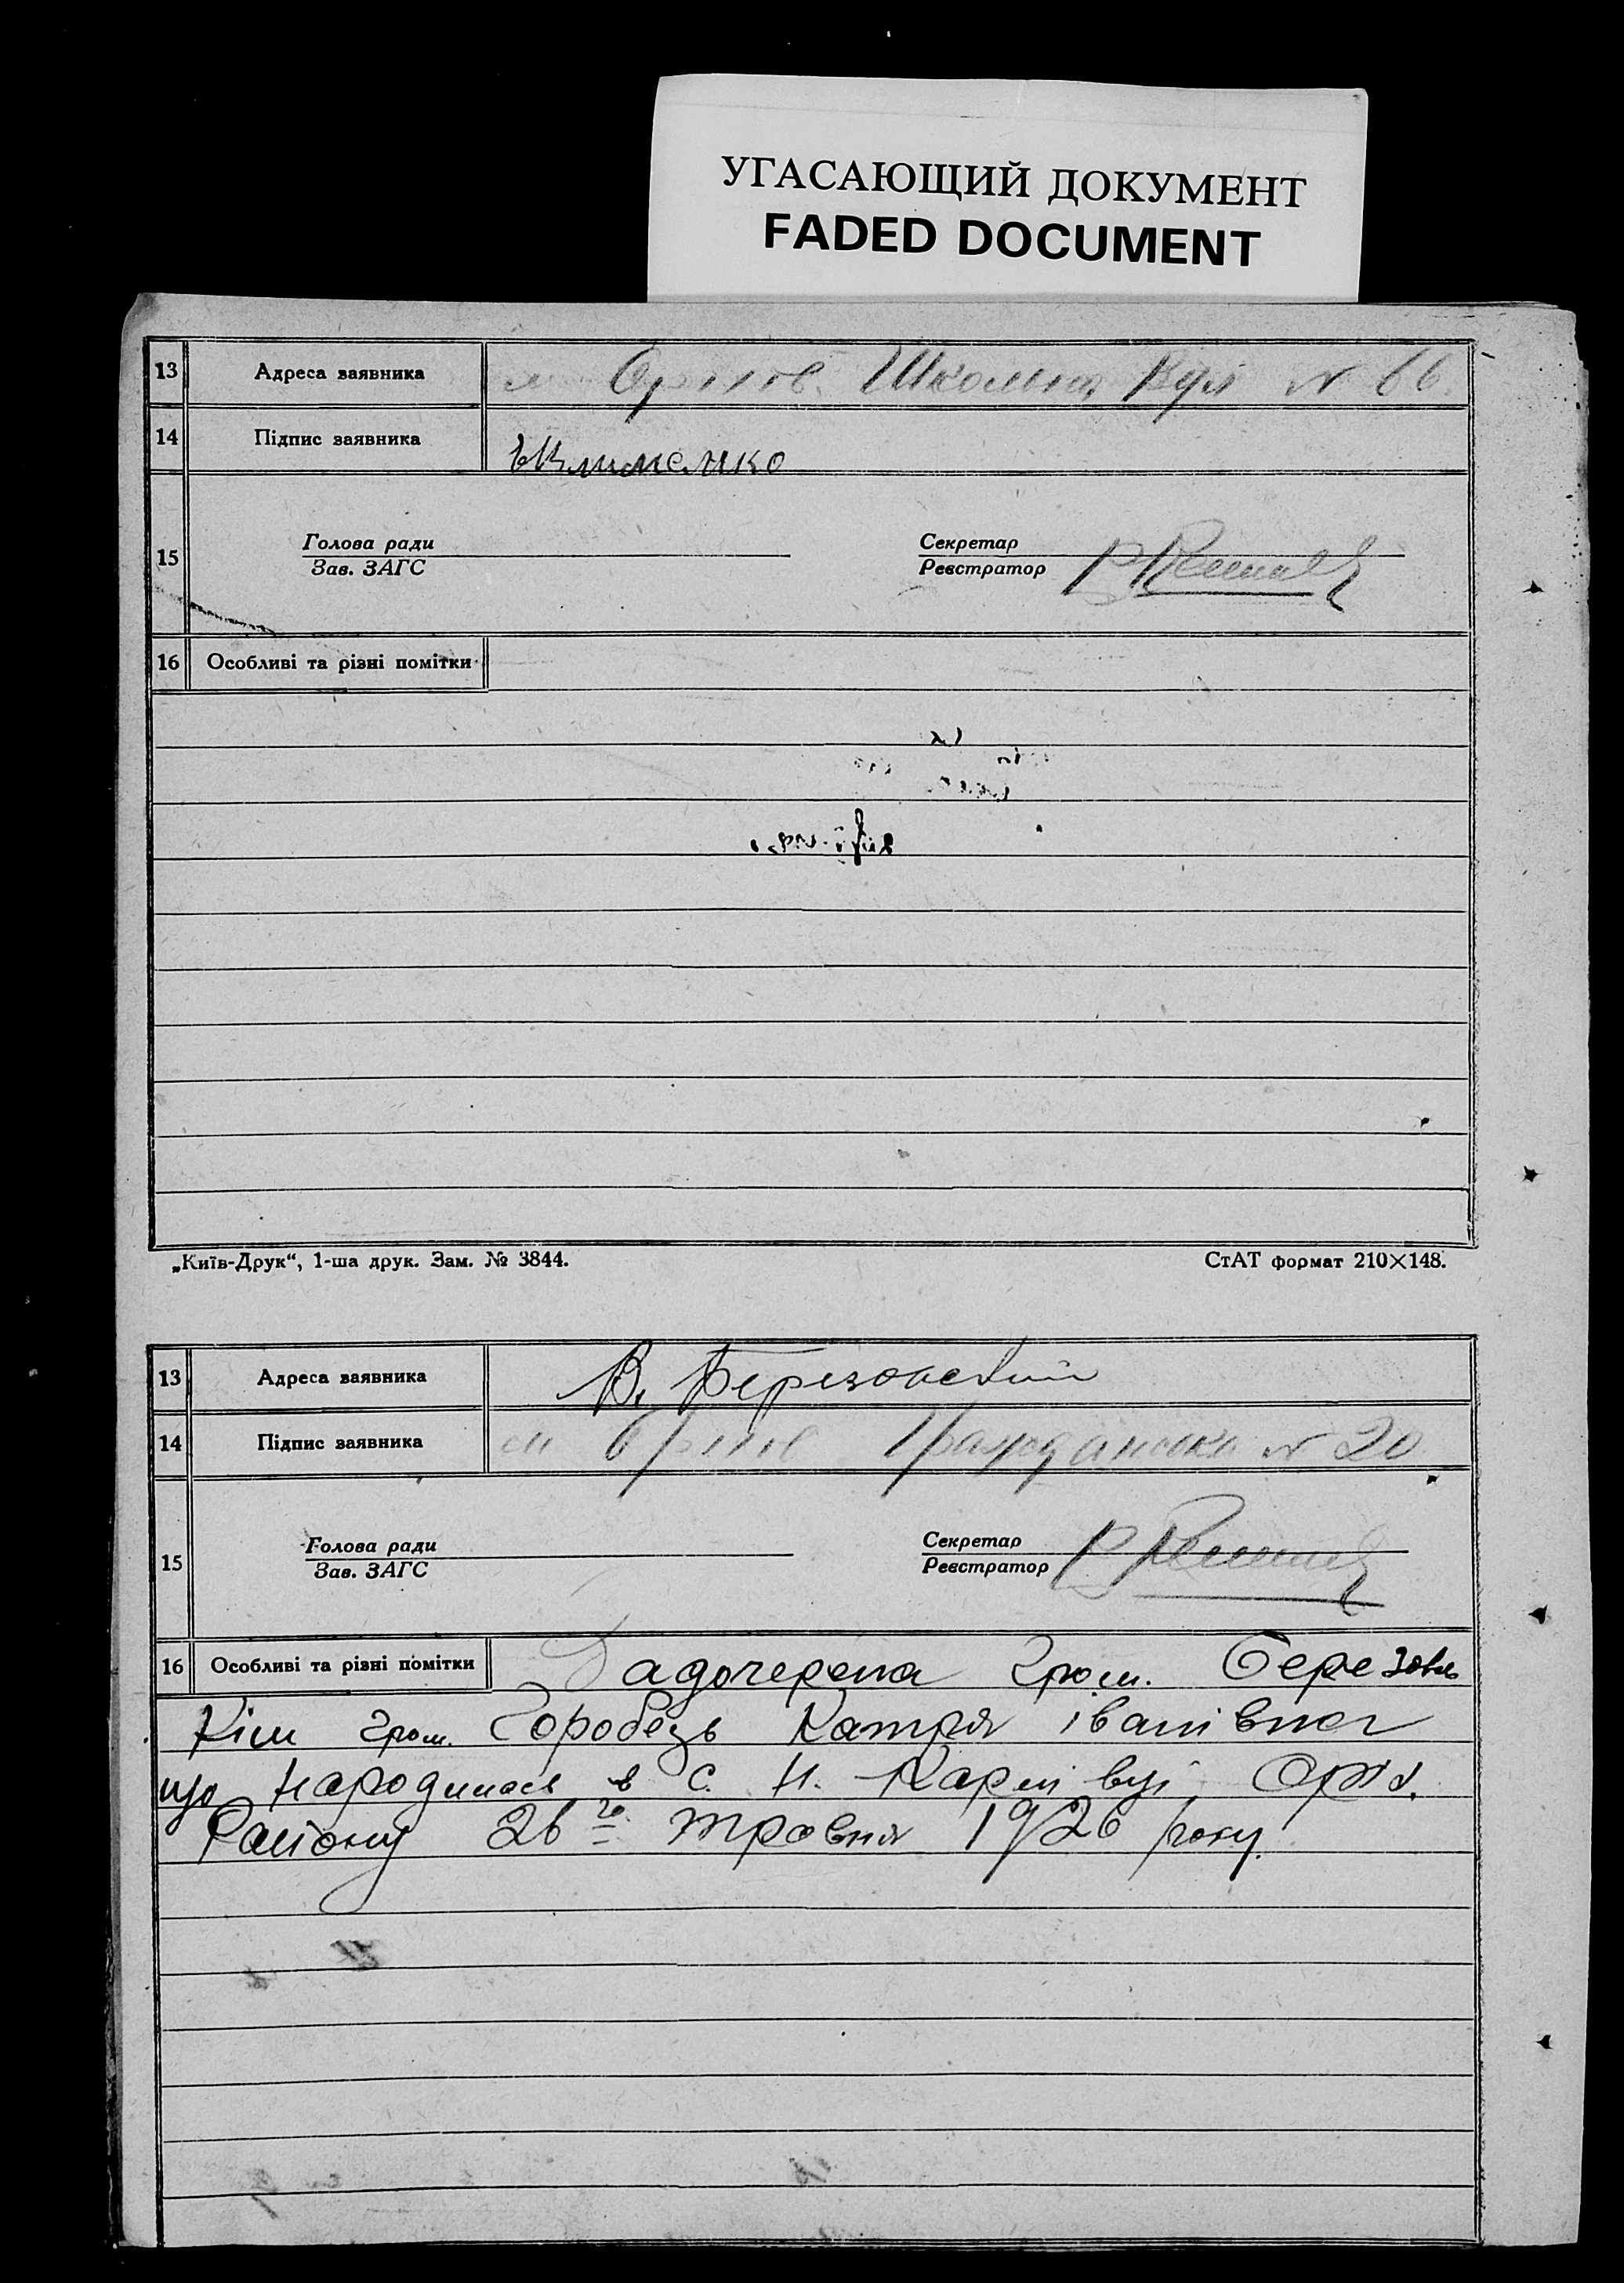 УГАСАЮЩИЙ ДОКУМЕНТ
FADED DOCUMENT
13 Адреса заявника Школьна № 66
14 Підпис заявника Клименко
Голова ради Секретар
15
Зав. ЗАГС Реєстратор
16 Особливі та різні помітки
„Київ-Друк“, 1-ша друк. Зам. № 3844. СтАТ формат 210×148.
13 Адреса заявника В. Березовский
14 Підпис заявника м № 20
Голова ради Секретар
15
Зав. ЗАГС Реєстратор
16 Особливі та різні помітки гром. Березовс
Кім гром. Горобець Катря іванівна
що народилась в с. Н. Карлівці Орж.
Району 26 го травня 1926 року.